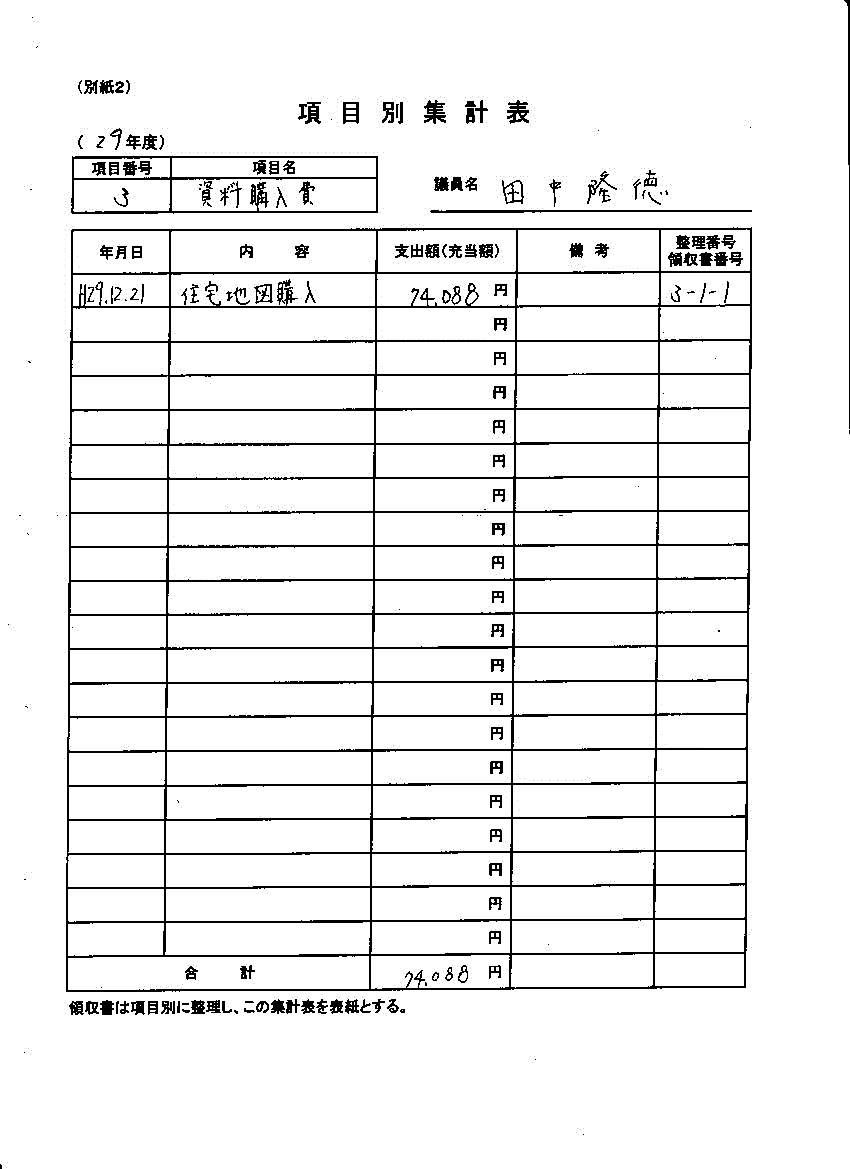 （別紙2）
項目別集計表
（29年度）
項目番号 項目名
3 資料購入費
議員名 田中隆徳
年月日 内容 支出額（充当額） 備考 整理番号 領収書番号
H29.12.21 住宅地図購入 74,088 円 3-1-1
円
円
円
円
円
円
円
円
円
円
円
円
円
円
円
円
円
円
円
合計 74,088 円
領収書は項目別に整理し、この集計表を表紙とする。